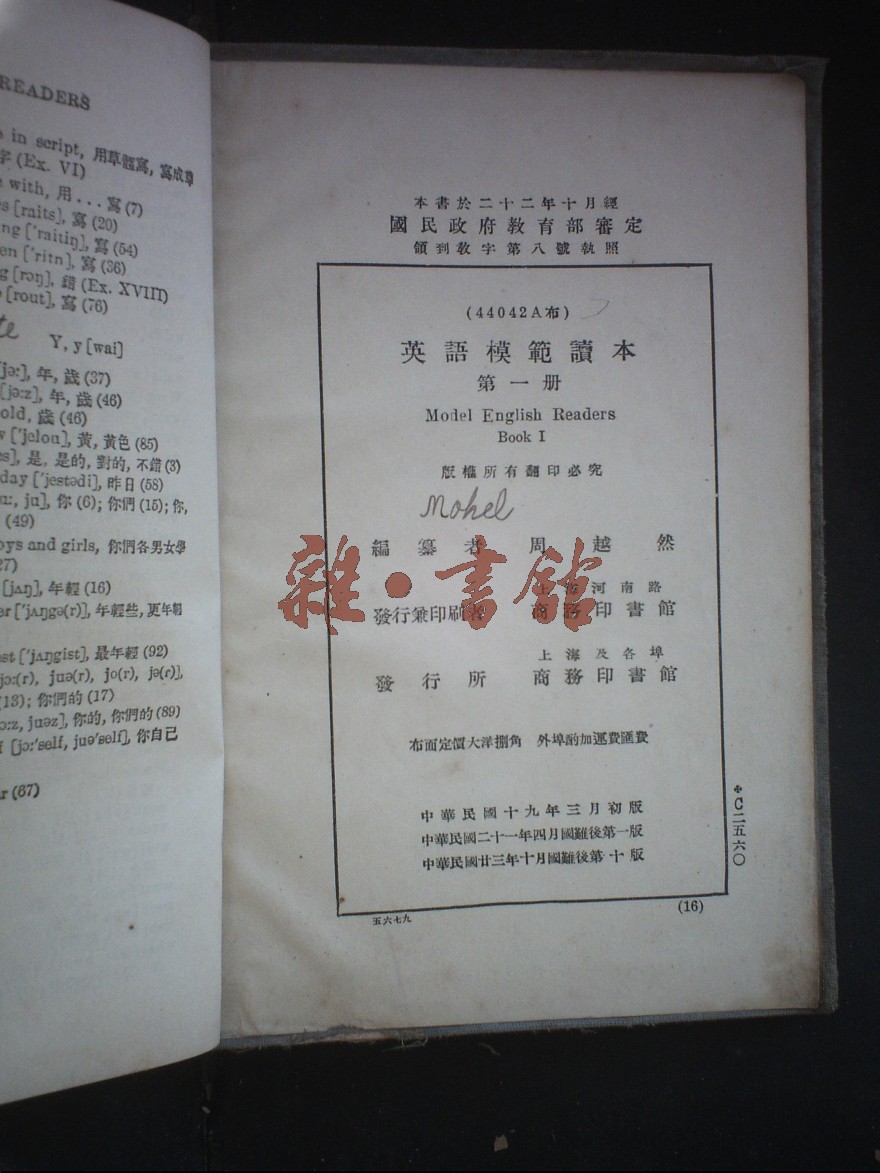 READERS
in script, 用草體寫, 寫成草
字 (Ex. VI)
with, 用...寫 (7)
[raits], 寫 (20)
['raitiŋ], 寫 (54)
['ritn], 寫 (36)
[rɔŋ], 錯 (Ex. XVIII)
[rout], 寫 (76)
Y, y [wai]
[jə:], 年, 歲 (37)
[jə:z], 年, 歲 (46)
old, 歲 (46)
['jelou], 黃, 黃色 (85)
是, 是的, 對的, 不錯 (3)
day ['jestədi], 昨日 (58)
ju], 你 (6); 你們 (15); 你,
(49)
boys and girls, 你們各男女學
27)
[jʌŋ], 年輕 (16)
['jʌŋgə(r)], 年輕些, 更年輕
['jʌŋgist], 最年輕 (92)
jɔ:(r), juə(r), jo(r), jə(r)],
(13); 你們的 (17)
juəz], 你的, 你們的 (89)
[jɔ:'self, juə'self], 你自己
(67)
本書於二十二年十月經
國民政府教育部審定
領到教字第八號執照
(44042A布)
英語模範讀本
第一册
Model English Readers
Book I
版權所有翻印必究
Mohel
編纂者 周越然
上海河南路
發行兼印刷者 商務印書館
上海及各埠
發行所 商務印書館
布面定價大洋捌角 外埠酌加運費匯費
中華民國十九年三月初版
中華民國二十一年四月國難後第一版
中華民國廿三年十月國難後第十版
五六七九
(16)
✢C二五六〇
雜·書館